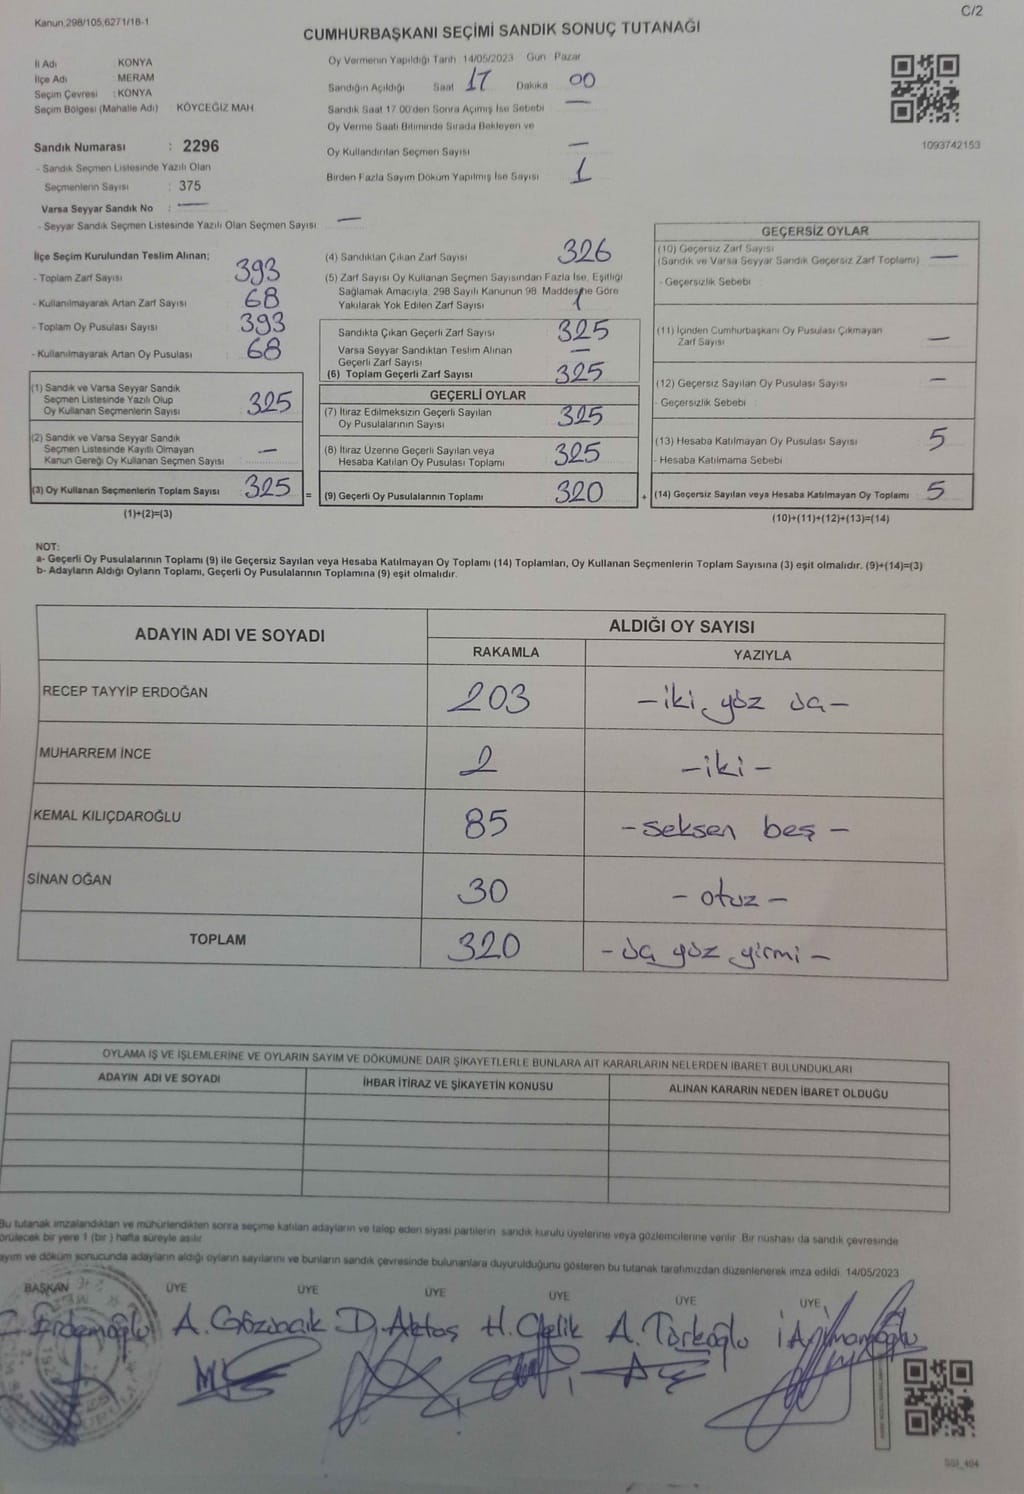 Kanun,298/105,6271/18-1
C/2
CUMHURBAŞKANI SEÇİMİ SANDIK SONUÇ TUTANAĞI
İl Adı : KONYA
İlçe Adı : MERAM
Seçim Çevresi : KONYA
Seçim Bölgesi (Mahalle Adı) : KÖYCEĞİZ MAH
Sandık Numarası : 2296
- Sandık Seçmen Listesinde Yazılı Olan
Seçmenlerin Sayısı : 375
Varsa Seyyar Sandık No : —
- Seyyar Sandık Seçmen Listesinde Yazılı Olan Seçmen Sayısı: —
Oy Vermenin Yapıldığı Tarih 14/05/2023 Gün Pazar
Sandığın Açıldığı Saat 17 Dakika 00
Sandık Saat 17.00'den Sonra Açımış İse Sebebi —
Oy Verme Saati Bitiminde Sırada Bekleyen ve
Oy Kullandırılan Seçmen Sayısı —
Birden Fazla Sayım Döküm Yapılmış İse Sayısı 1
1093742153
İlçe Seçim Kurulundan Teslim Alınan;
- Toplam Zarf Sayısı : 393
- Kullanılmayarak Artan Zarf Sayısı : 68
- Toplam Oy Pusulası Sayısı : 393
- Kullanılmayarak Artan Oy Pusulası : 68
(1) Sandık ve Varsa Seyyar Sandık
Seçmen Listesinde Yazılı Olup
Oy Kullanan Seçmenlerin Sayısı 325
(2) Sandık ve Varsa Seyyar Sandık
Seçmen Listesinde Kayıtlı Olmayan
Kanun Gereği Oy Kullanan Seçmen Sayısı —
(3) Oy Kullanan Seçmenlerin Toplam Sayısı 325 =
(1)+(2)=(3)
(4) Sandıktan Çıkan Zarf Sayısı 326
(5) Zarf Sayısı Oy Kullanan Seçmen Sayısından Fazla İse, Eşitliği
Sağlamak Amacıyla, 298 Sayılı Kanunun 98. Maddesine Göre
Yakılarak Yok Edilen Zarf Sayısı 1
Sandıkta Çıkan Geçerli Zarf Sayısı 325
Varsa Seyyar Sandıktan Teslim Alınan
Geçerli Zarf Sayısı —
(6) Toplam Geçerli Zarf Sayısı 325
GEÇERLİ OYLAR
(7) İtiraz Edilmeksizin Geçerli Sayılan
Oy Pusulalarının Sayısı 325
(8) İtiraz Üzerine Geçerli Sayılan veya
Hesaba Katılan Oy Pusulası Toplamı 325
(9) Geçerli Oy Pusulalarının Toplamı 320 +
GEÇERSİZ OYLAR
(10) Geçersiz Zarf Sayısı
(Sandık ve Varsa Seyyar Sandık Geçersiz Zarf Toplamı) —
- Geçersizlik Sebebi :
(11) İçinden Cumhurbaşkanı Oy Pusulası Çıkmayan
Zarf Sayısı —
(12) Geçersiz Sayılan Oy Pusulası Sayısı —
- Geçersizlik Sebebi :
(13) Hesaba Katılmayan Oy Pusulası Sayısı 5
- Hesaba Katılmama Sebebi :
(14) Geçersiz Sayılan veya Hesaba Katılmayan Oy Toplamı 5
(10)+(11)+(12)+(13)=(14)
NOT:
a- Geçerli Oy Pusulalarının Toplamı (9) ile Geçersiz Sayılan veya Hesaba Katılmayan Oy Toplamı (14) Toplamları, Oy Kullanan Seçmenlerin Toplam Sayısına (3) eşit olmalıdır. (9)+(14)=(3)
b- Adayların Aldığı Oyların Toplamı, Geçerli Oy Pusulalarının Toplamına (9) eşit olmalıdır.
ADAYIN ADI VE SOYADI
ALDIĞI OY SAYISI
RAKAMLA YAZIYLA
RECEP TAYYİP ERDOĞAN 203 – iki yüz üç –
MUHARREM İNCE 2 – iki –
KEMAL KILIÇDAROĞLU 85 – seksen beş –
SİNAN OĞAN 30 – otuz –
TOPLAM 320 – üç yüz yirmi –
OYLAMA İŞ VE İŞLEMLERİNE VE OYLARIN SAYIM VE DÖKÜMÜNE DAİR ŞİKAYETLERLE BUNLARA AİT KARARLARIN NELERDEN İBARET BULUNDUKLARI
ADAYIN ADI VE SOYADI İHBAR İTİRAZ VE ŞİKAYETİN KONUSU ALINAN KARARIN NEDEN İBARET OLDUĞU
Bu tutanak imzalandıktan ve mühürlendikten sonra seçime katılan adayların ve talep eden siyasi partilerin sandık kurulu üyelerine veya gözlemcilerine verilir. Bir nüshası da sandık çevresinde
örülecek bir yere 1 (bir) hafta süreyle asılır
ayım ve döküm sonucunda adayların aldığı oyların sayılarını ve bunların sandık çevresinde bulunanlara duyurulduğunu gösteren bu tutanak tarafımızdan düzenlenerek imza edildi. 14/05/2023
BAŞKAN ÜYE ÜYE ÜYE ÜYE ÜYE ÜYE
Erdemoğlu A. Gözbacık D. Aktaş H. Çelik A. Türkoğlu
SSI_404